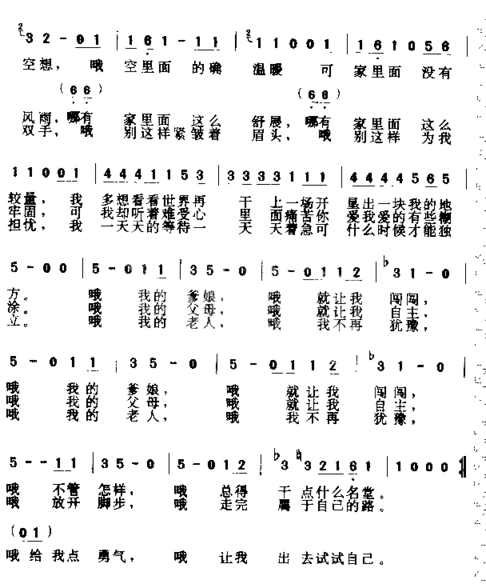 3 2 - 0 1 | 1 6 1 - 1 1 | 1 1 0 0 1 | 1 6 1 0 5 6 |
空想，哦 空里面 的确 温暖 可 家里面 没有
(6 6) (6 6)
风雨，哪有 家里面 这么 舒展，哪有 家里面 这么
双手，哦 别这样 紧皱着 眉头，哦 别这样 为我
1 1 0 0 1 | 4 4 4 1 1 5 1 | 3 3 3 1 1 1 | 4 4 4 4 5 6 |
较量，我 多想看看世界再 干 上一场开 垦出一块我的地
牢固，可 我却听着难受心 里 面痛苦你 爱我爱的有些糊
担忧，我 一天天的等待一 天 天着急可 什么时候才能独
5 - 0 0 | 5 - 0 1 1 | 3 5 - 0 | 5 - 0 1 1 2 | ♭3 1 - 0 |
方。 哦 我的 爹娘， 哦 就让我 闯闯，
涂。 哦 我的 父母， 哦 就让我 自主，
立。 哦 我的 老人， 哦 我不再 犹豫，
5 - 0 1 1 | 3 5 - 0 | 5 - 0 1 1 2 | ♭3 1 - 0 |
哦 我的 爹娘， 哦 就让我 闯闯，
哦 我的 父母， 哦 就让我 自主，
哦 我的 老人， 哦 我不再 犹豫，
5 - - 1 1 | 3 5 - 0 | 5 - 0 1 2 | ♭3 ♮3 2 1 6 1 | 1 0 0 0 ‖
哦 不管 怎样， 哦 总得 干 点什么名堂。
哦 放开 脚步， 哦 走完 属 于自己的路。
(0 1)
哦 给我点 勇气， 哦 让我 出 去试试自己。